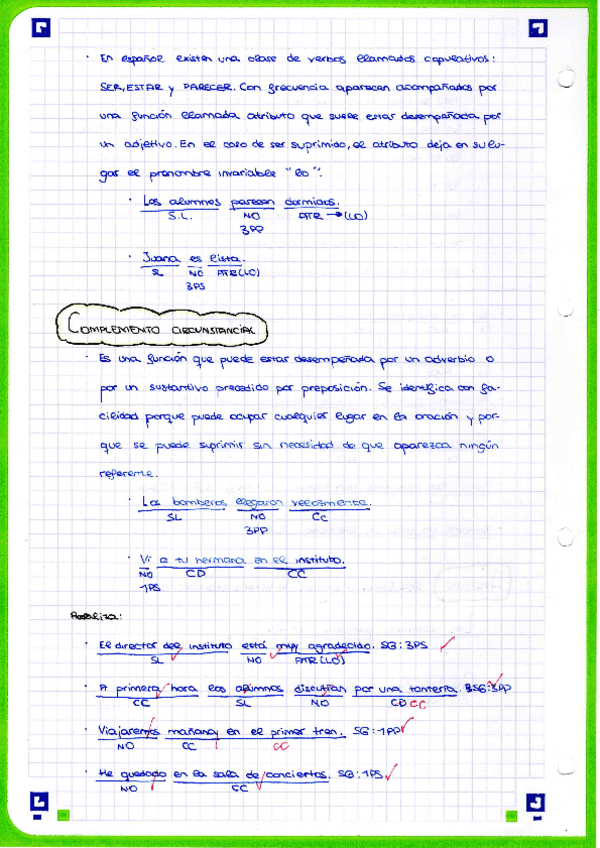 · En español existen una clase de verbos llamados copulativos:
SER, ESTAR y PARECER. Con frecuencia aparecen acompañados por
una función llamada atributo que suele estar desempeñada por
un adjetivo. En el caso de ser suprimido, el atributo deja en su lu-
gar el pronombre invariable "lo".
· Los alumnos parecen dormidos.
S.L. NO ATR → (LO)
3PP
· Juana es lista.
SL NO ATR (LO)
3PS
COMPLEMENTO CIRCUNSTANCIAL
· Es una función que puede estar desempeñada por un adverbio o
por un sustantivo precedido por preposición. Se identifica con fa-
cilidad porque puede ocupar cualquier lugar en la oración y por-
que se puede suprimir sin necesidad de que aparezca ningún
referente.
· Los bomberos llegaron velozmente.
SL NO CC
3PP
· Vi a tu hermana en el instituto.
NO CD CC
1PS
Analiza:
· El director del instituto está muy agradecido. SG: 3PS
SL NO ATR (LO)
· A primera hora los alumnos discutían por una tontería. SG: 3PP
CC SL NO CD CC
· Viajaremos mañana en el primer tren. SG: 1PP
NO CC CC
· He quedado en la sala de conciertos. SG: 1PS
NO CC